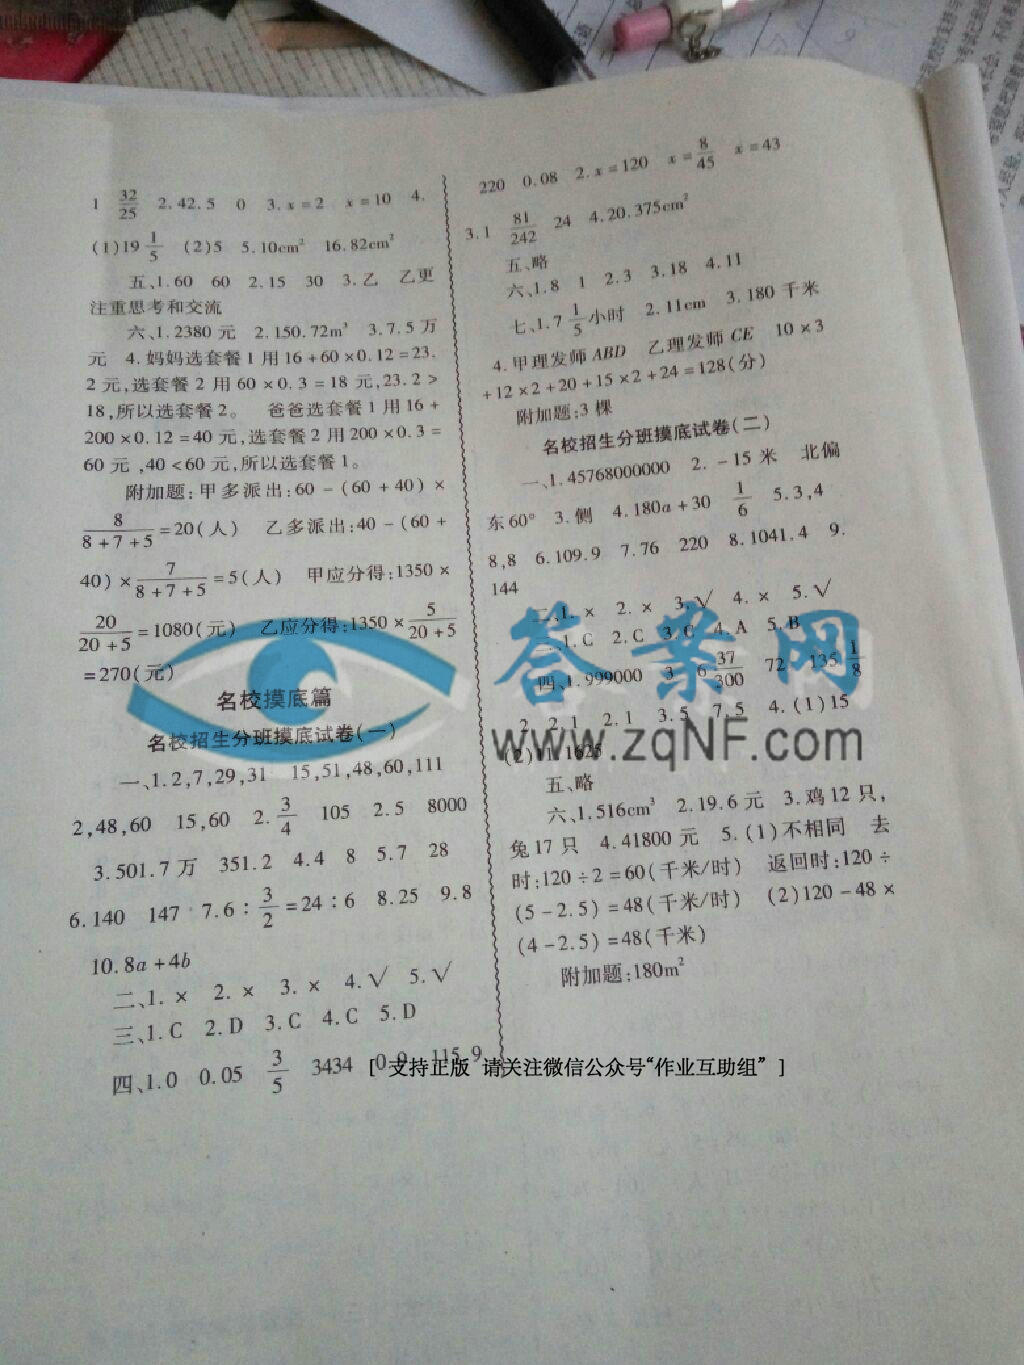 1 32/25 2.42.5 0 3.x=2 x=10 4.
(1)19 1/5 (2)5 5.10cm² 16.82cm²
五、1.60 60 2.15 30 3.乙 乙更
注重思考和交流
六、1.2380元 2.150.72m³ 3.7.5万
元 4.妈妈选套餐1用16+60×0.12=23.
2元,选套餐2用60×0.3=18元,23.2>
18,所以选套餐2。 爸爸选套餐1用16+
200×0.12=40元,选套餐2用200×0.3=
60元,40<60元,所以选套餐1。
附加题:甲多派出:60-(60+40)×
8/(8+7+5)=20(人) 乙多派出:40-(60+
40)×7/(8+7+5)=5(人) 甲应分得:1350×
20/(20+5)=1080(元) 乙应分得:1350×5/(20+5)
=270(元)
名校摸底篇
名校招生分班摸底试卷(一)
一、1.2,7,29,31 15,51,48,60,111
2,48,60 15,60 2.3/4 105 2.5 8000
3.501.7万 351.2 4.4 8 5.7 28
6.140 147 7.6∶3/2=24∶6 8.25 9.8
10.8a+4b
二、1.× 2.× 3.× 4.√ 5.√
三、1.C 2.D 3.C 4.C 5.D
四、1.0 0.05 3/5 3434 0.9 115.9
220 0.08 2.x=120 x=8/45 x=43
3.1 81/242 24 4.20.375cm²
五、略
六、1.8 1 2.3 3.18 4.11
七、1.7 1/5小时 2.11cm 3.180千米
4.甲理发师ABD 乙理发师CE 10×3
+12×2+20+15×2+24=128(分)
附加题:3棵
名校招生分班摸底试卷(二)
一、1.45768000000 2.-15米 北偏
东60° 3.侧 4.180a+30 1/6 5.3,4
8,8 6.109.9 7.76 220 8.1041.4 9.
144
二、1.× 2.× 3.√ 4.× 5.√
三、1.C 2.C 3.C 4.A 5.B
四、1.999000 3 6 37/300 72 135 1/8
2.2.1 2.1 3.5 7.5 4.(1)15
(2)11.1625
五、略
六、1.516cm³ 2.19.6元 3.鸡12只,
兔17只 4.41800元 5.(1)不相同 去
时:120÷2=60(千米/时) 返回时:120÷
(5-2.5)=48(千米/时) (2)120-48×
(4-2.5)=48(千米)
附加题:180m²
答案网
www.zqNF.com
[ 支持正版 请关注微信公众号“作业互助组” ]